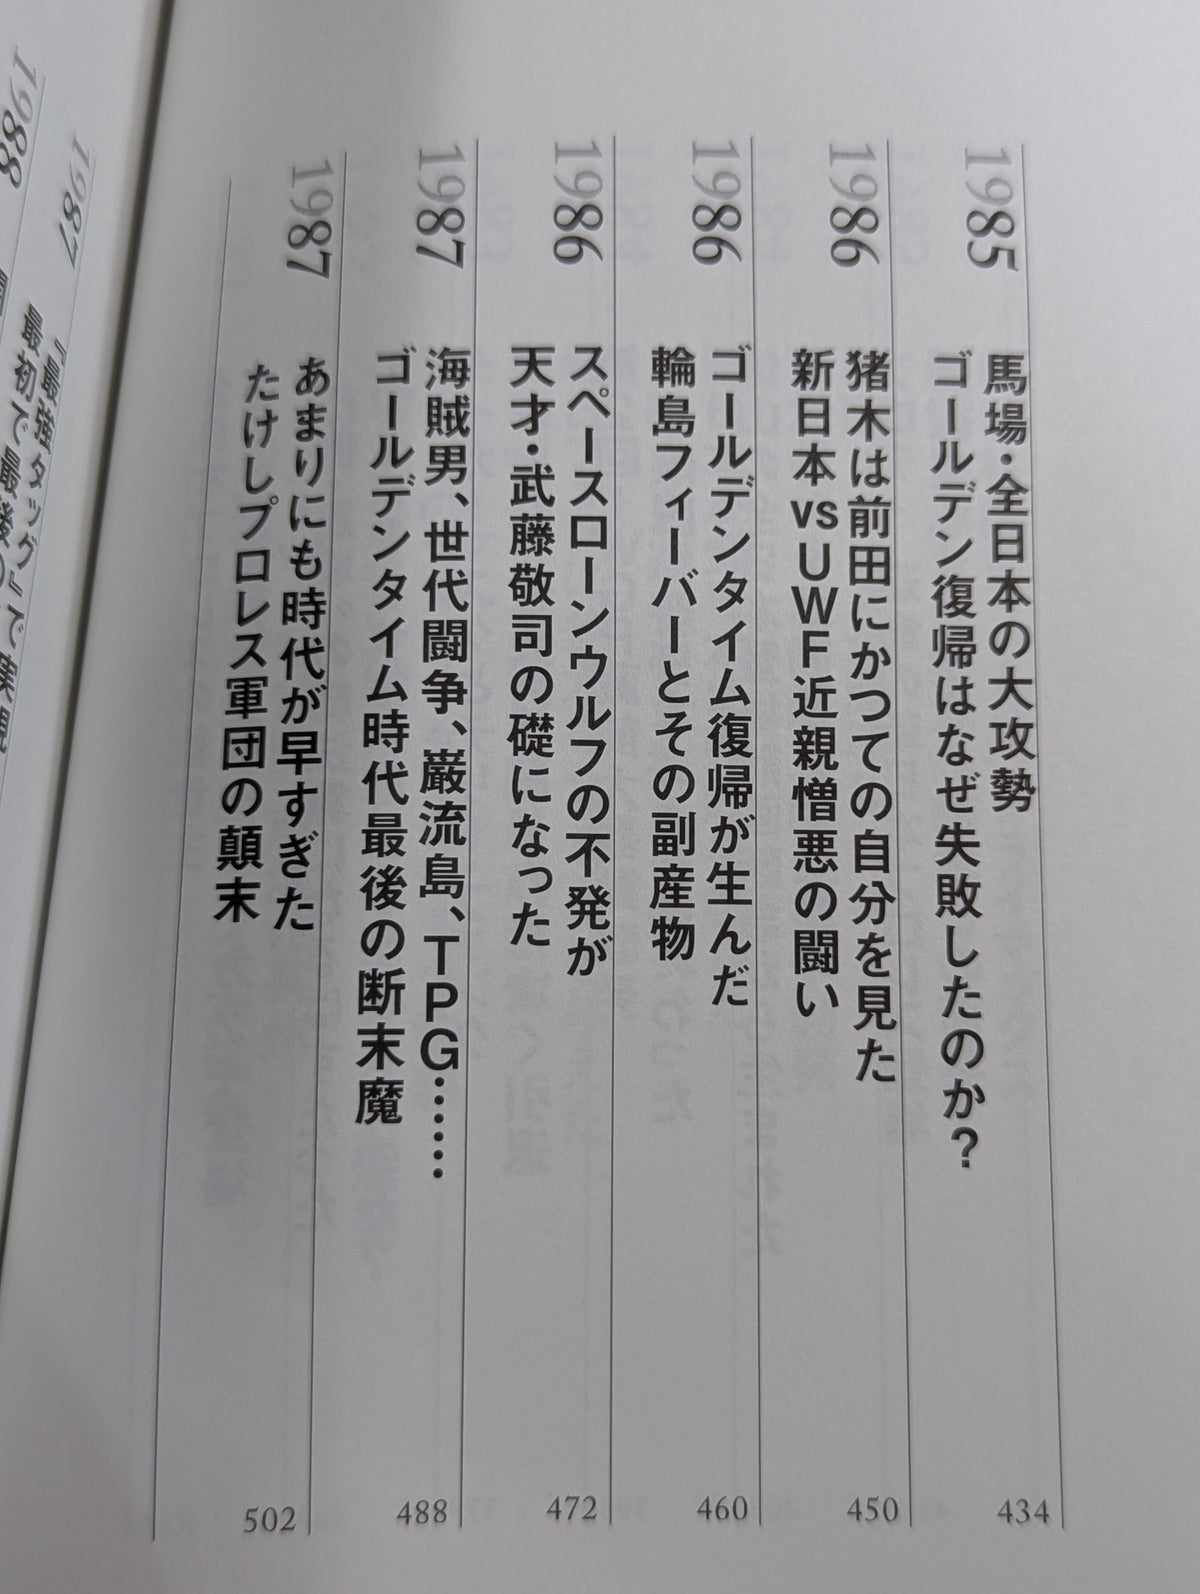 1985
馬場・全日本の大攻勢
ゴールデン復帰はなぜ失敗したのか?
434
1986
猪木は前田にかつての自分を見た
新日本vsUWF近親憎悪の闘い
450
1986
ゴールデンタイム復帰が生んだ
輪島フィーバーとその副産物
460
1986
スペースローンウルフの不発が
天才・武藤敬司の礎になった
472
1987
海賊男、世代闘争、巌流島、TPG……
ゴールデンタイム時代最後の断末魔
488
1987
あまりにも時代が早すぎた
たけしプロレス軍団の顛末
502
1987
『最強タッグ』で実現
最初で最後の
1988